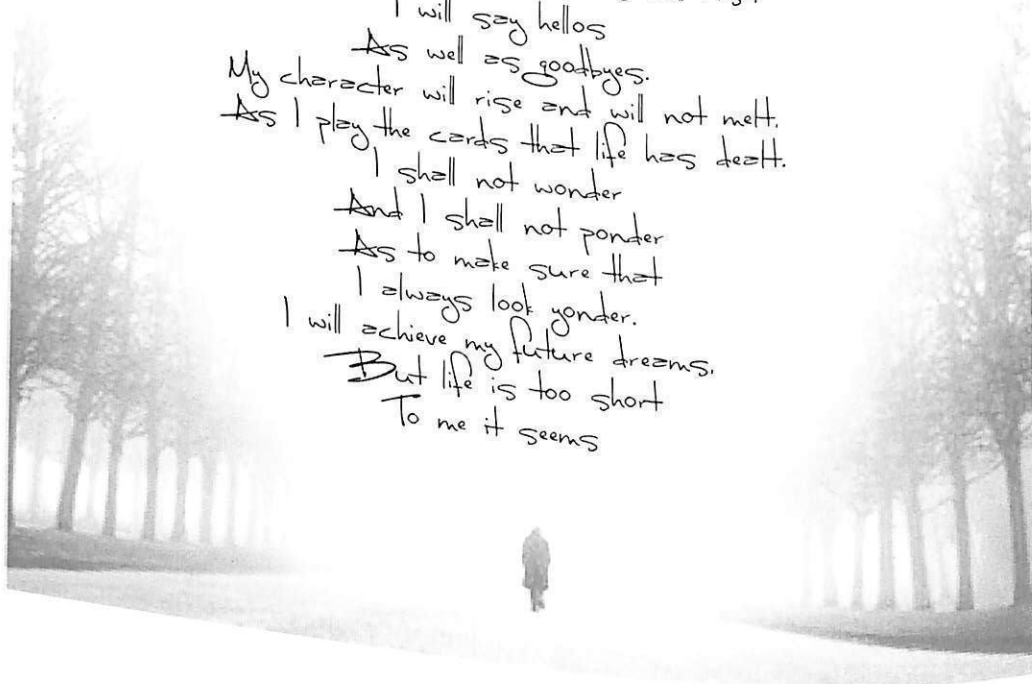 I will say hellos
As well as goodbyes.
My character will rise and will not melt.
As I play the cards that life has dealt.
I shall not wonder
And I shall not ponder
As to make sure that
I always look yonder.
I will achieve my future dreams.
But life is too short
To me it seems